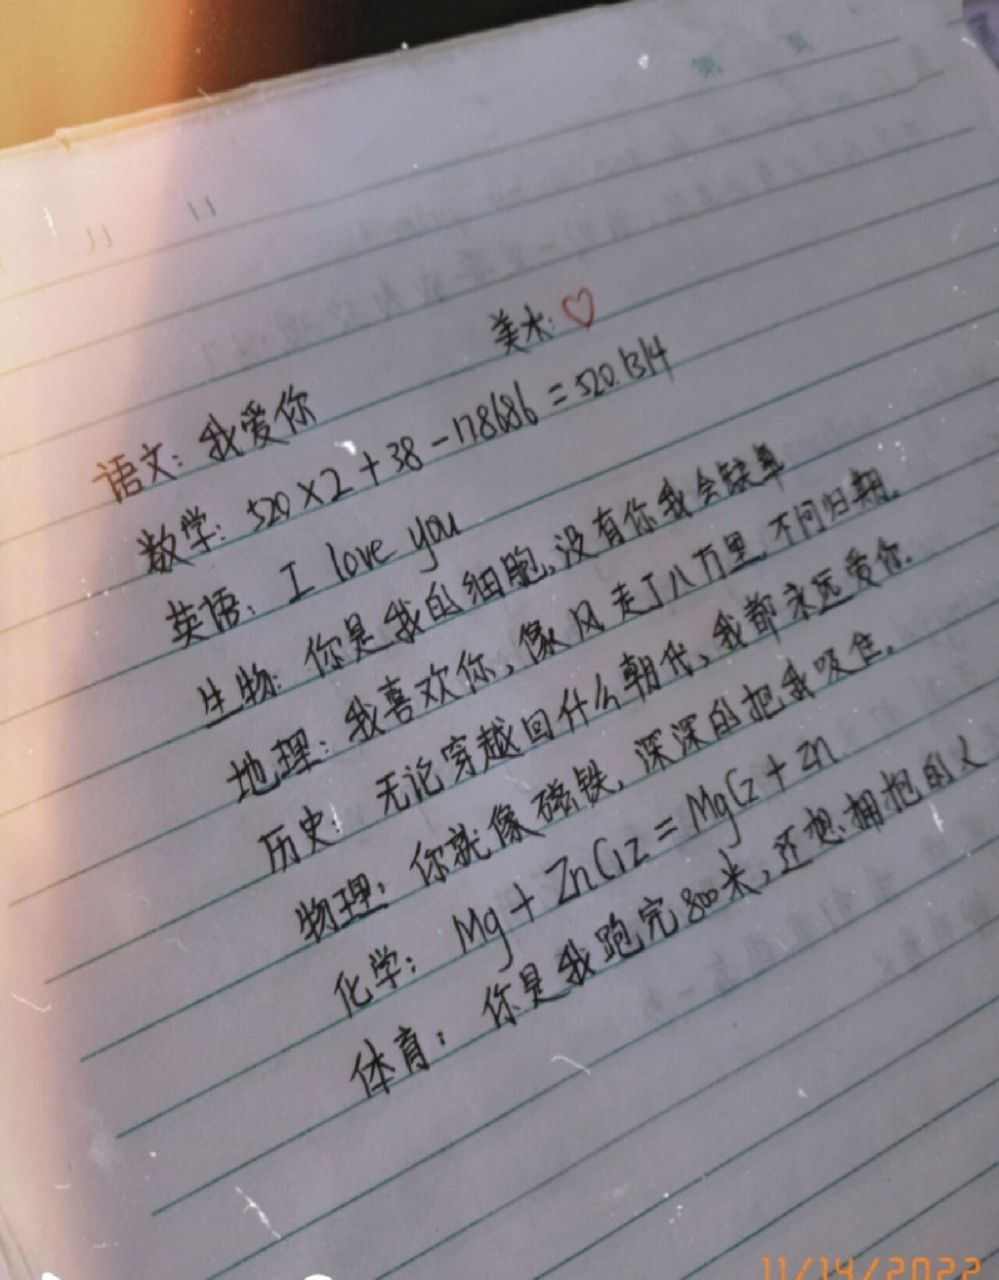 第 页
月 日
美术:♡
语文:我爱你
数学:520×2+38-178686=520.1314
英语:I love you
生物:你是我的细胞,没有你我会缺单
地理:我喜欢你,像风走了八万里,不问归期.
历史:无论穿越回什么朝代,我都永远爱你.
物理:你就像磁铁,深深的把我吸住.
化学:Mg+ZnCl2=MgCl2+Zn
体育:你是我跑完800米,还想拥抱的人
11/14/2022